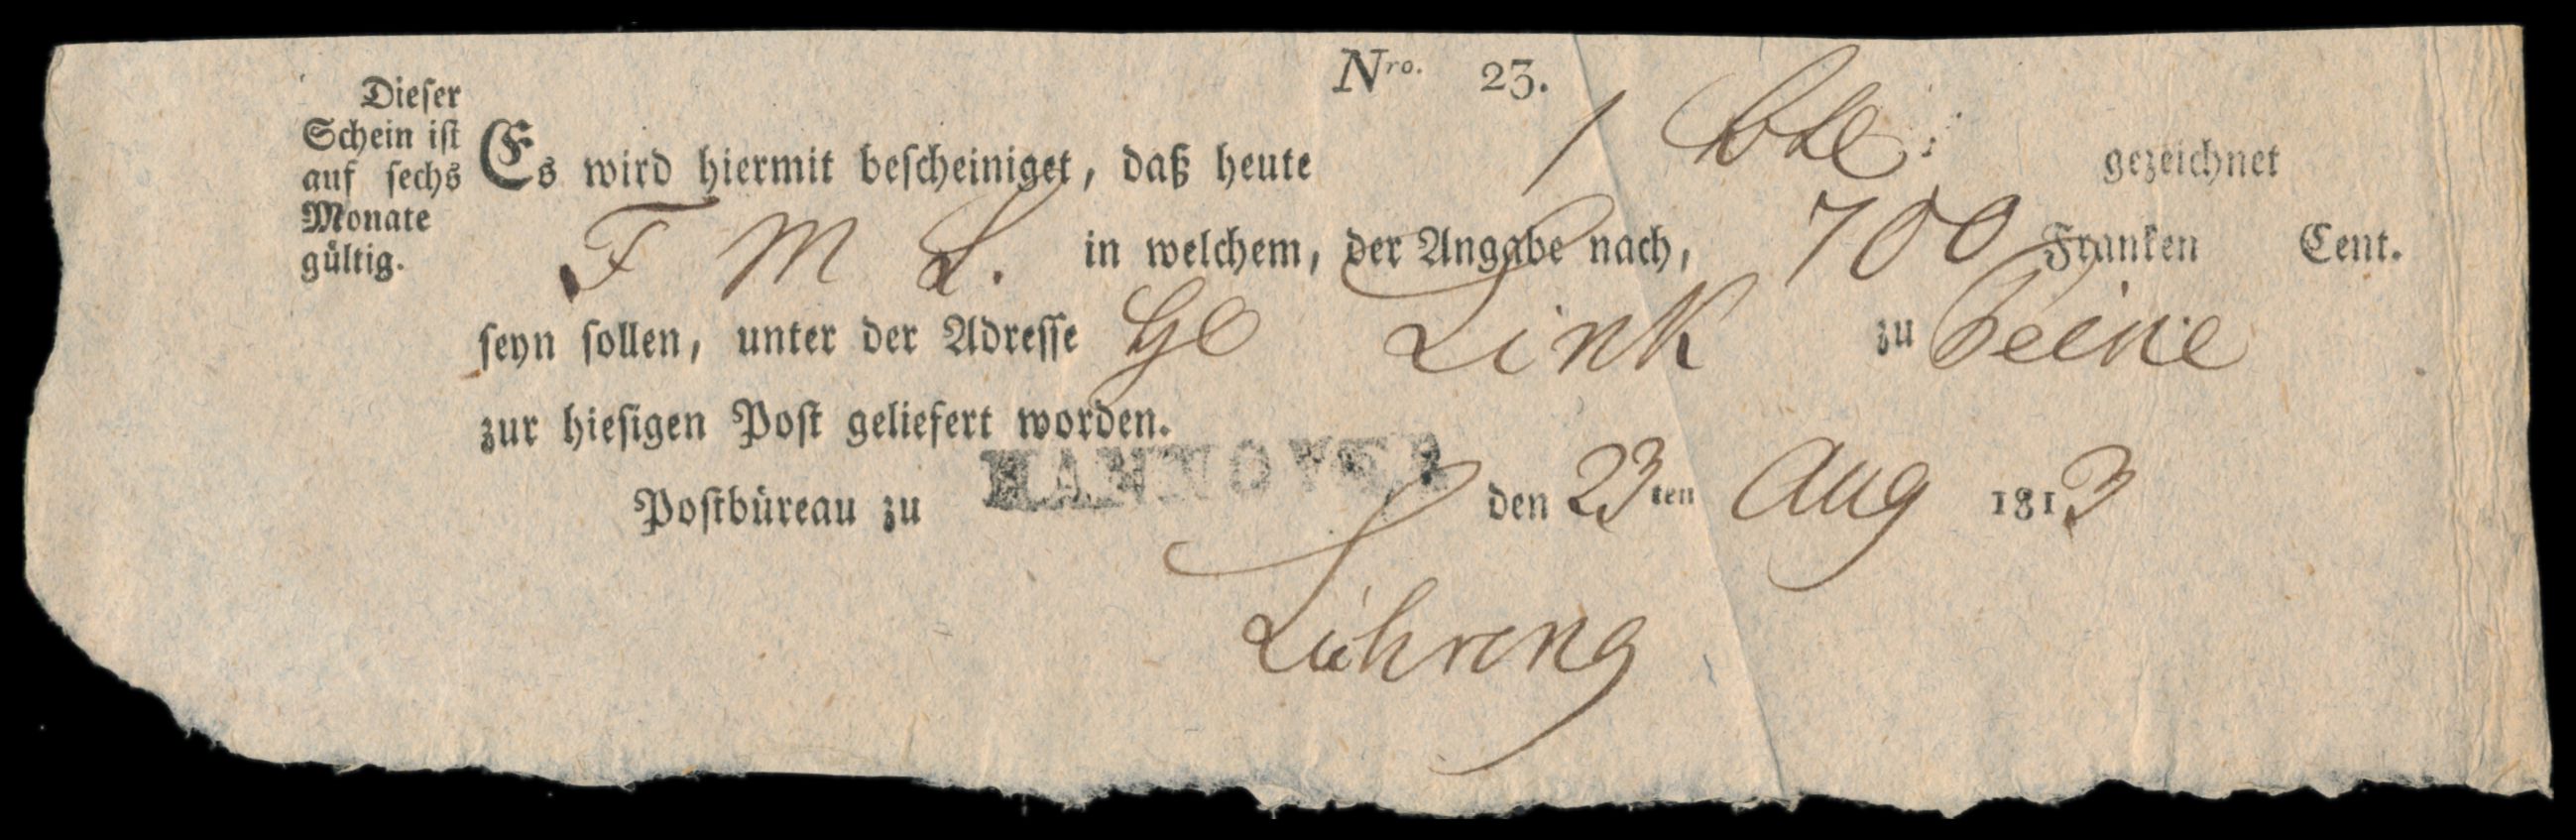 Nro. 23.
Dieser
Schein ist
auf sechs
Monate
gültig.
Es wird hiermit bescheiniget, daß heute 1 gezeichnet
F M L. in welchem, der Angabe nach, 700 Franken Cent.
seyn sollen, unter der Adresse Link zu Peine
zur hiesigen Post geliefert worden.
Postbüreau zu HANNOVER den 23ten Aug 1813
Lühring